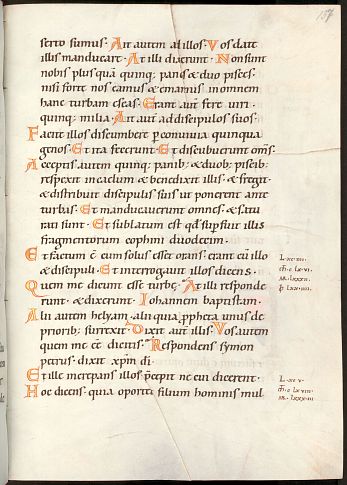 157
serto sumus. Ait autem ad illos. Vos date
illis manducare. At illi dixerunt. Non sunt
nobis plus quā quinq; panes & duo pisces.
nisi forte nos eamus & emamus in omnem
hanc turbam escas. Erant aut̄ fere viri
quinq; milia. Ait aut̄ ad discipulos suos.
Facite illos discumbere p conuiuia quinqua
genos. Et ita fecerunt. Et discubuerunt om̄s.
Acceptis autem quinq; panib; & duob; piscib;
respexit in caelum & benedixit illis. & fregit.
& distribuit discipulis suis ut ponerent ante
turbas. Et manducauerunt omnes. & satu
rati sunt. Et sublatum est qd̄ supfuit illis
fragmentorum cophini duodecim.
Et factum ē cum solus esset orans. erant cū illo
& discipuli. Et interrogauit illos dicens.
Quem me dicunt esse turbę; At illi responde
runt. & dixerunt. Iohannem baptistam.
Alii autem heliam. alii quia ppheta unus de
priorib; surrexit. Dixit aut̄ illis. Vos autem
quem me eē dicitis. Respondens symon
petrus. dixit. xp̄m dī.
Et ille increpans illos pcepit ne cui dicerent.
Hoc dicens. quia oportet filium hominis mul